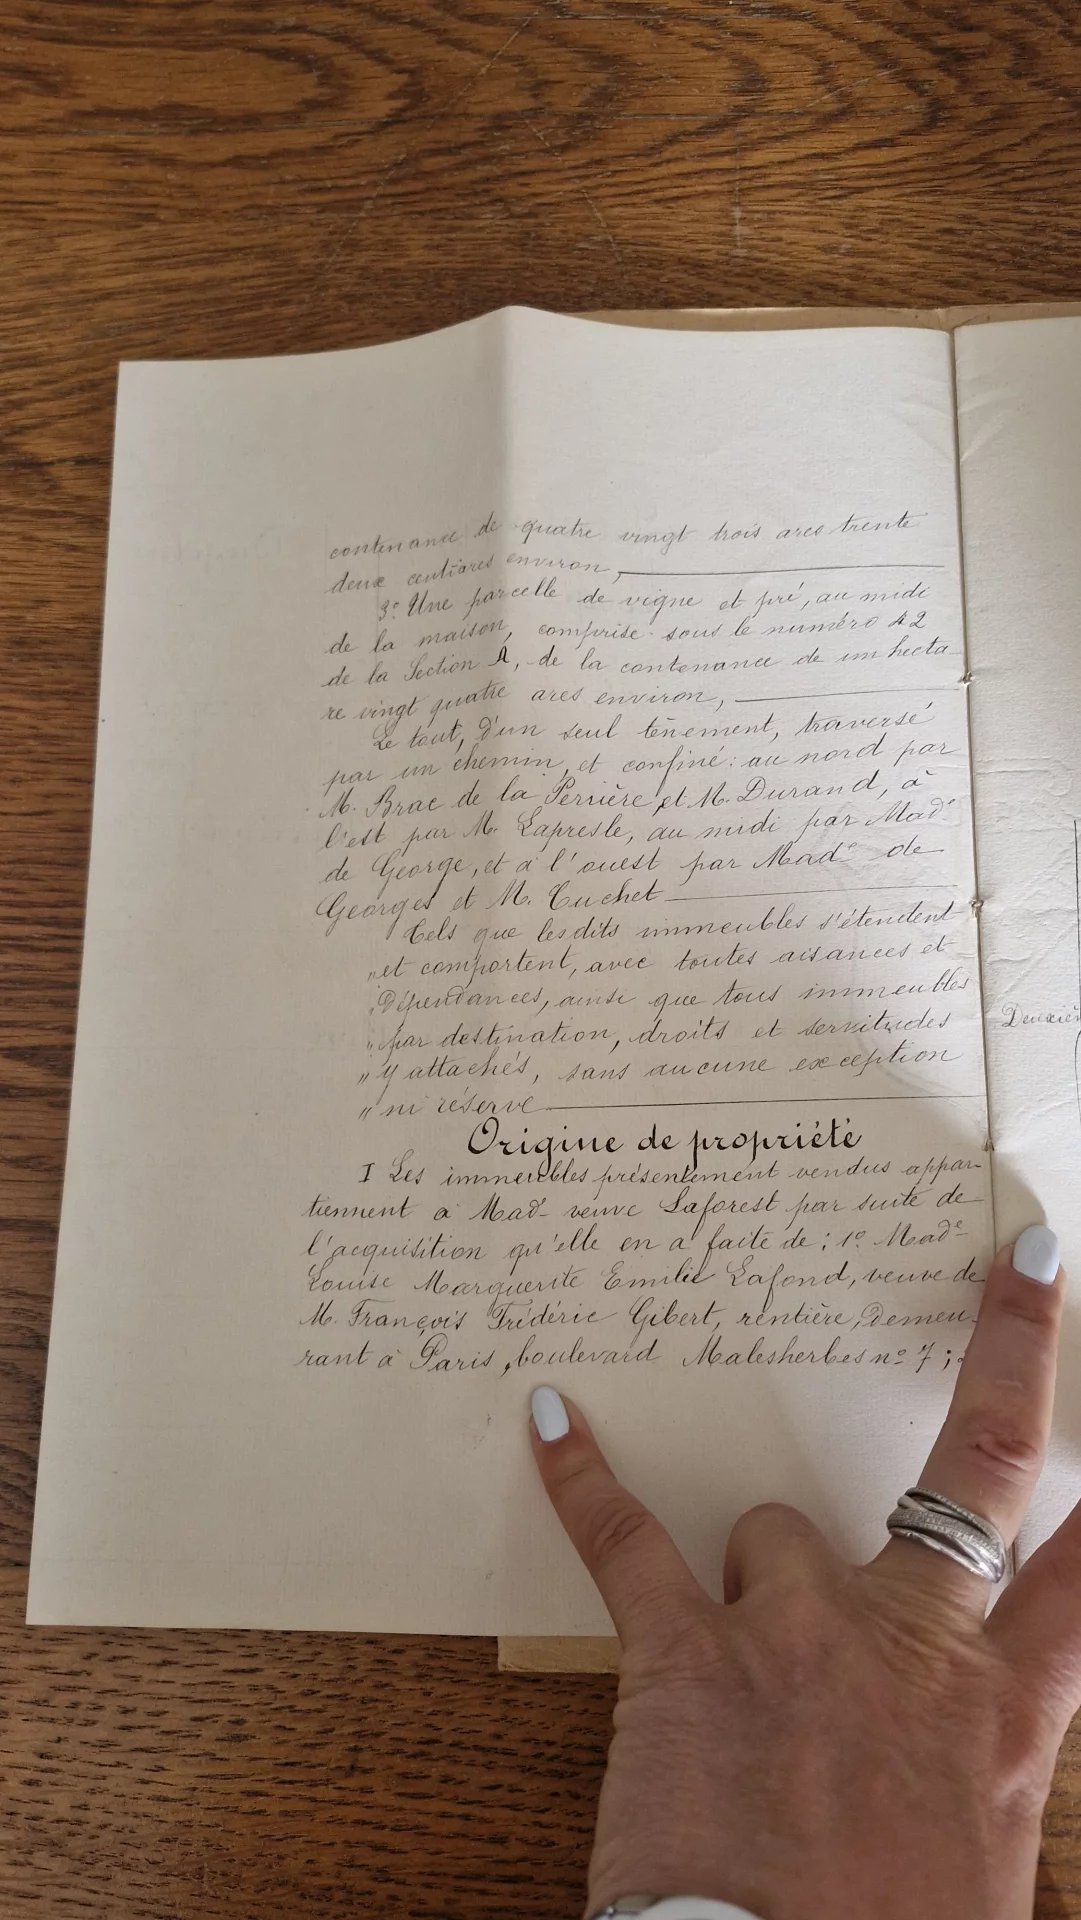 contenance de quatre vingt trois ares trente
deux centiares environ,
3.º Une parcelle de vigne et pré, au midi
de la maison, comprise sous le numéro 42
de la Section A, de la contenance de un hecta-
re vingt quatre ares environ,
Le tout, d'un seul tènement, traversé
par un chemin, et confiné: au nord par
M. Brac de la Perrière, et M. Durand, à
l'est par M. Lapresle, au midi par Madᵉ
de George, et à l'ouest par Madᵉ de
Georges et M. Tuchet
Tels que lesdits immeubles s'étendent
"et comportent, avec toutes aisances et
"dépendances, ainsi que tous immeubles
"par destination, droits et servitudes
"y attachés, sans aucune exception
"ni réserve
Origine de propriété
I Les immeubles présentement vendus appar-
tiennent à Madᵉ veuve Laforest par suite de
l'acquisition qu'elle en a faite de: 1º. Madᵉ
Louise Marguerite Emilie Lafond, veuve de
M. François Frédéric Gibert, rentière, demeu-
rant à Paris, boulevard Malesherbes nº 7;